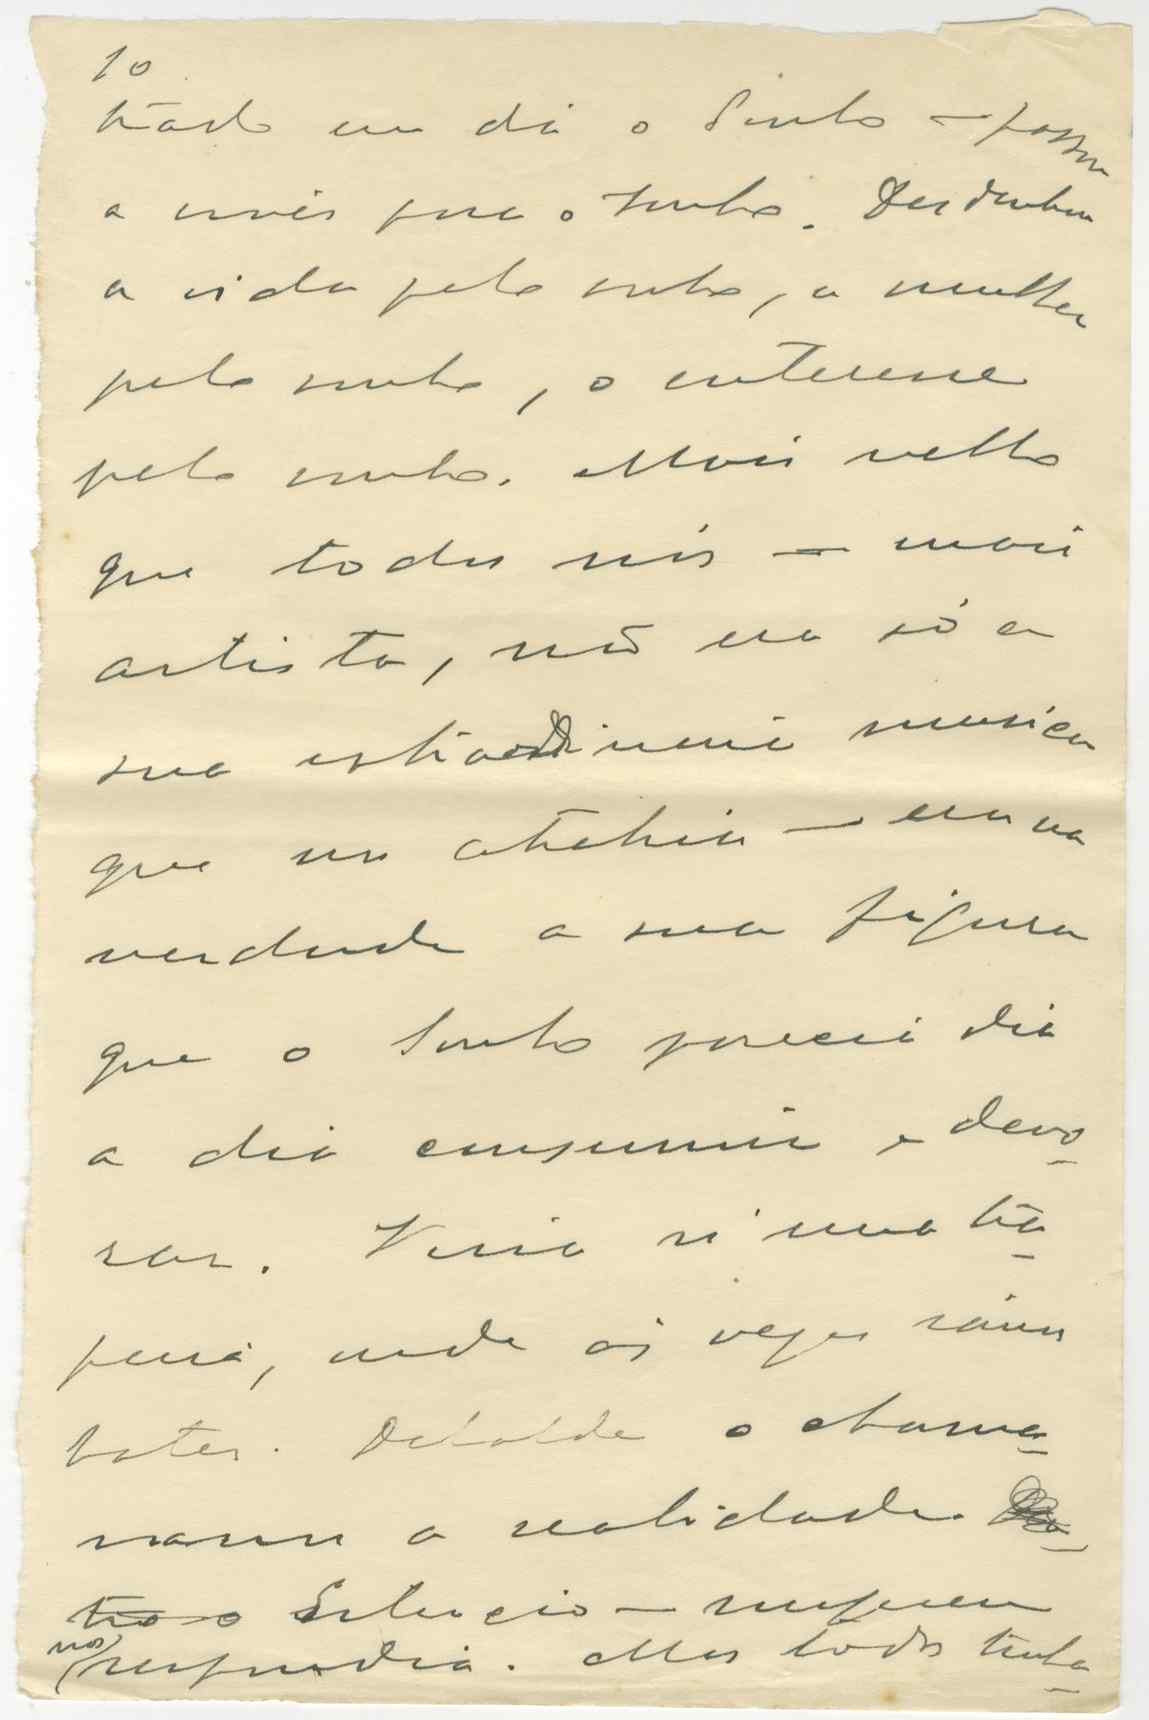 10
trado um dia o Sonho — possu
a mais que o sonho. Desdenhou
a vida pelo sonho, a mulher
pelo sonho, o interesse
pelo sonho. Mais velho
que todos nós — mais
artista, não era só a
sua extraordinaria musica
que nos atrahia — era na
verdade a sua figura
que o Sonho parecia dia
a dia consumir e devo-
rar. Vivia n'uma tra-
peira, onde ás vezes iamos
bater. Debalde o chama-
vamos a realidade.
tra o Silencio — ninguem
nos respondia. Mas todos tinha-